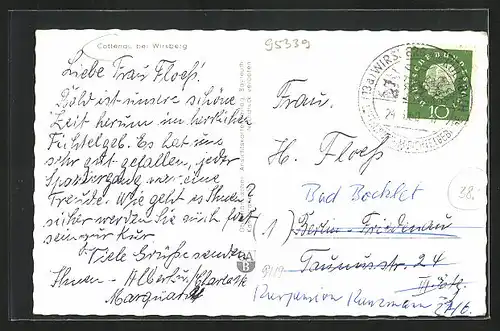 Cottenau bei Wirsberg
95339
Liebe Frau Floeß.
Bald ist unsere schöne
Zeit herum im herrlichen
Fichtelgeb. Es hat uns
sehr gut gefallen, jeder
Spaziergang war eine
Freude. Wie geht es Ihnen?
sicher werden Sie auch fort
sein zur Kur
Viele Grüße senden
Ihnen - Albert u. Charlotte
Marquardt
Frau
H. Floeß
Bad Bocklet
(1) Berlin-Friedenau
Taunusstr. 24
Kurpension Kunzmann
(13a) WIRSBERG
DEUTSCHE BUNDESPOST
10
38.-